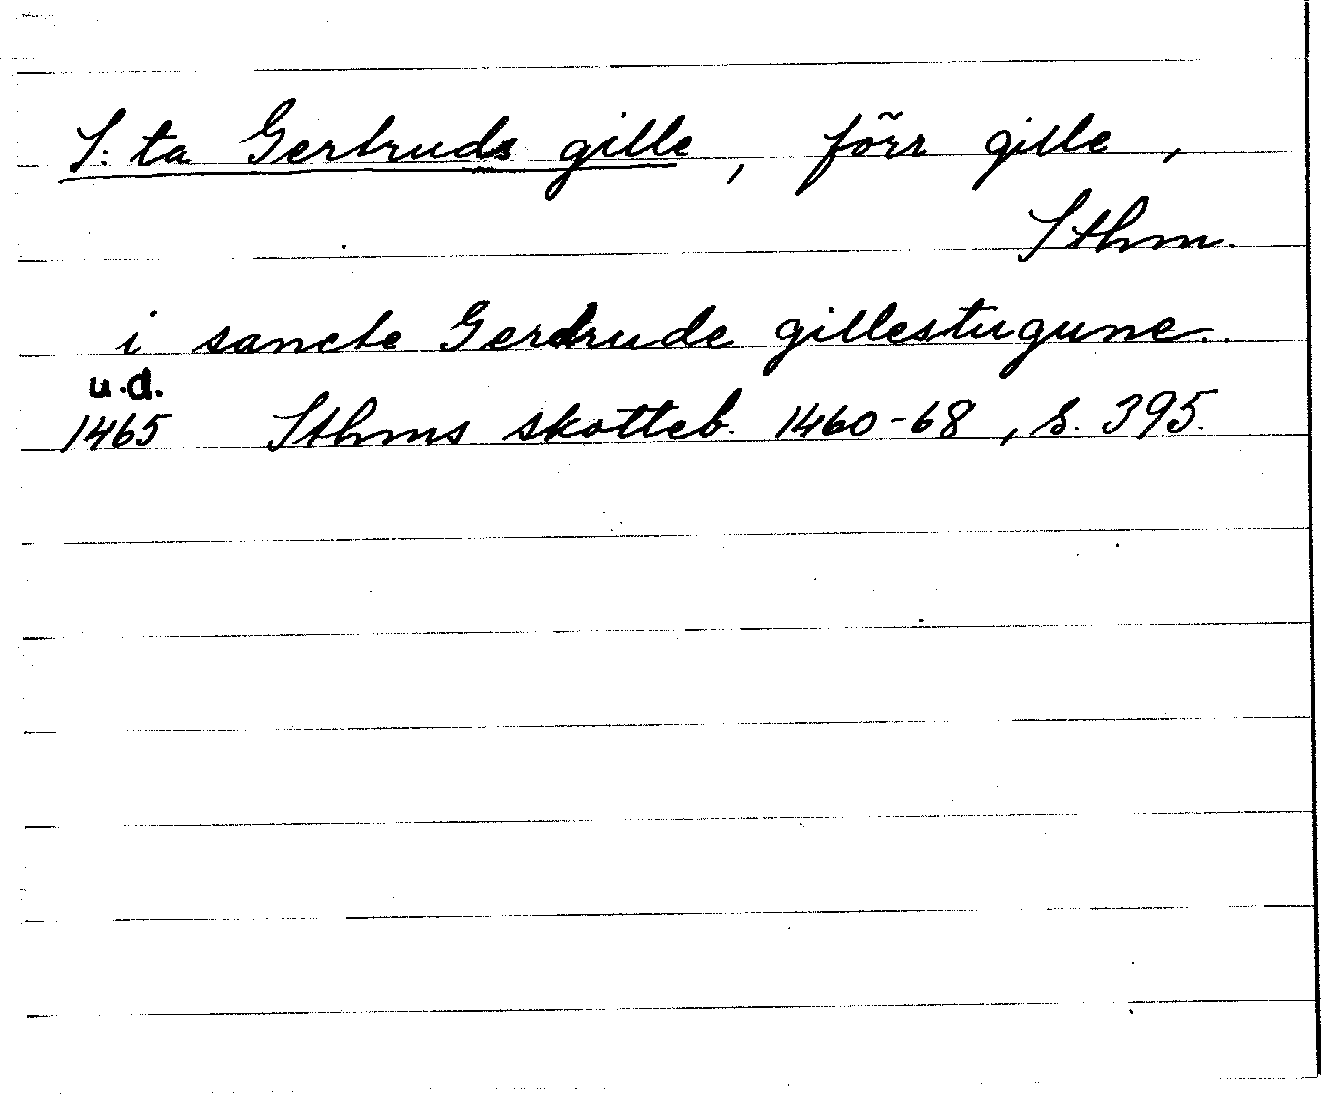 S:ta Gertruds gille, förr gille,
Sthm.
i sancte Gerdrude gillestugune.
u.d.
1465 Sthms skotteb. 1460-68, s. 395.